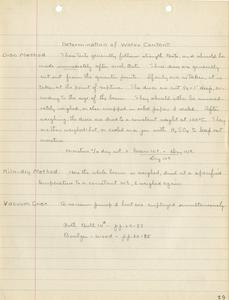 Determination of Water Content
Disc Method. These tests generally follow strength tests, and should be
made immediately after each test. These discs are generally
cut out from the quarter points. If only one is taken, it is
taken at the point of rupture. The discs are cut to 1" deep,
according to the size of the beam. They should either be immed-
iately weighed, or else wrapped in oiled paper & sealed. After
weighing, the discs are dried to a constant weight at 100°C. They
are then weighed hot, or cooled in a jar with H2SO4 to keep out
moisture.
Moisture % dry wt. = Green Wt. - Dry Wt.
Dry Wt.
Kiln-dry Method. Here the whole beam is weighed, dried at a specified
temperature to a constant wt., & weighed again.
Vacuum Oven. A vacuum pump & heat are employed simultaneously